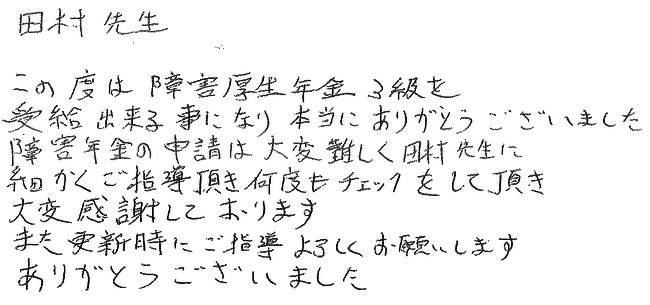 田村先生
この度は障害厚生年金3級を
受給出来る事になり本当にありがとうございました
障害年金の申請は大変難しく田村先生に
細かくご指導頂き何度もチェックをして頂き
大変感謝しております
また更新時にご指導よろしくお願いします
ありがとうございました